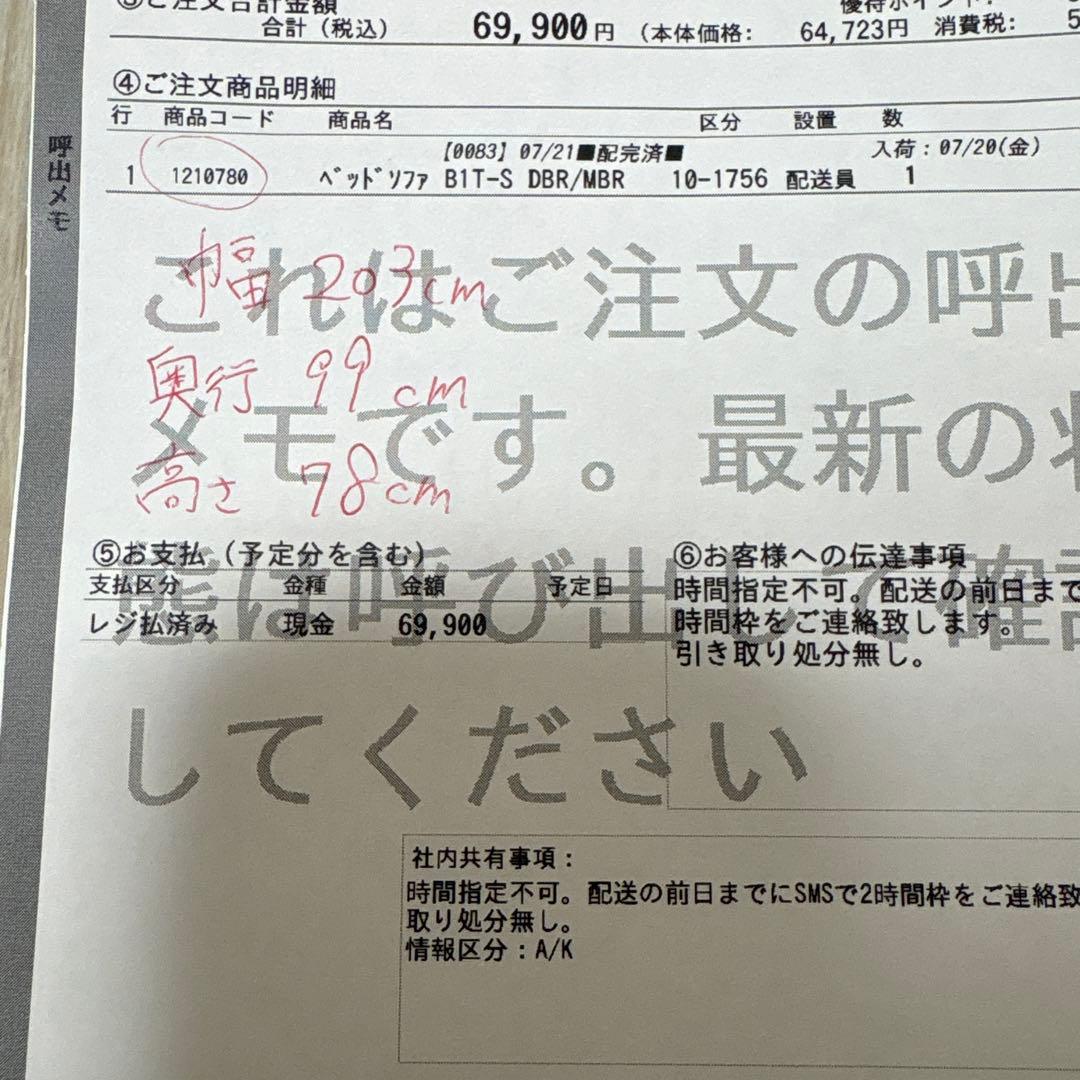 ③ご注文合計金額
優待ポイント:
合計（税込） 69,900円 （本体価格: 64,723円 消費税: 5
④ご注文商品明細
行 商品コード 商品名 区分 設置 数
【0083】07/21■配完済■ 入荷:07/20(金)
1 1210780 ﾍﾞｯﾄﾞｿﾌｧ B1T-S DBR/MBR 10-1756 配送員 1
呼出メモ
巾幅 203cm
奥行 99cm
高さ 78cm
これはご注文の呼出
メモです。最新の状
態は呼び出して確認
してください
⑤お支払（予定分を含む）
支払区分 金種 金額 予定日
レジ払済み 現金 69,900
⑥お客様への伝達事項
時間指定不可。配送の前日まで
時間枠をご連絡致します。
引き取り処分無し。
社内共有事項:
時間指定不可。配送の前日までにSMSで2時間枠をご連絡致
取り処分無し。
情報区分:A/K